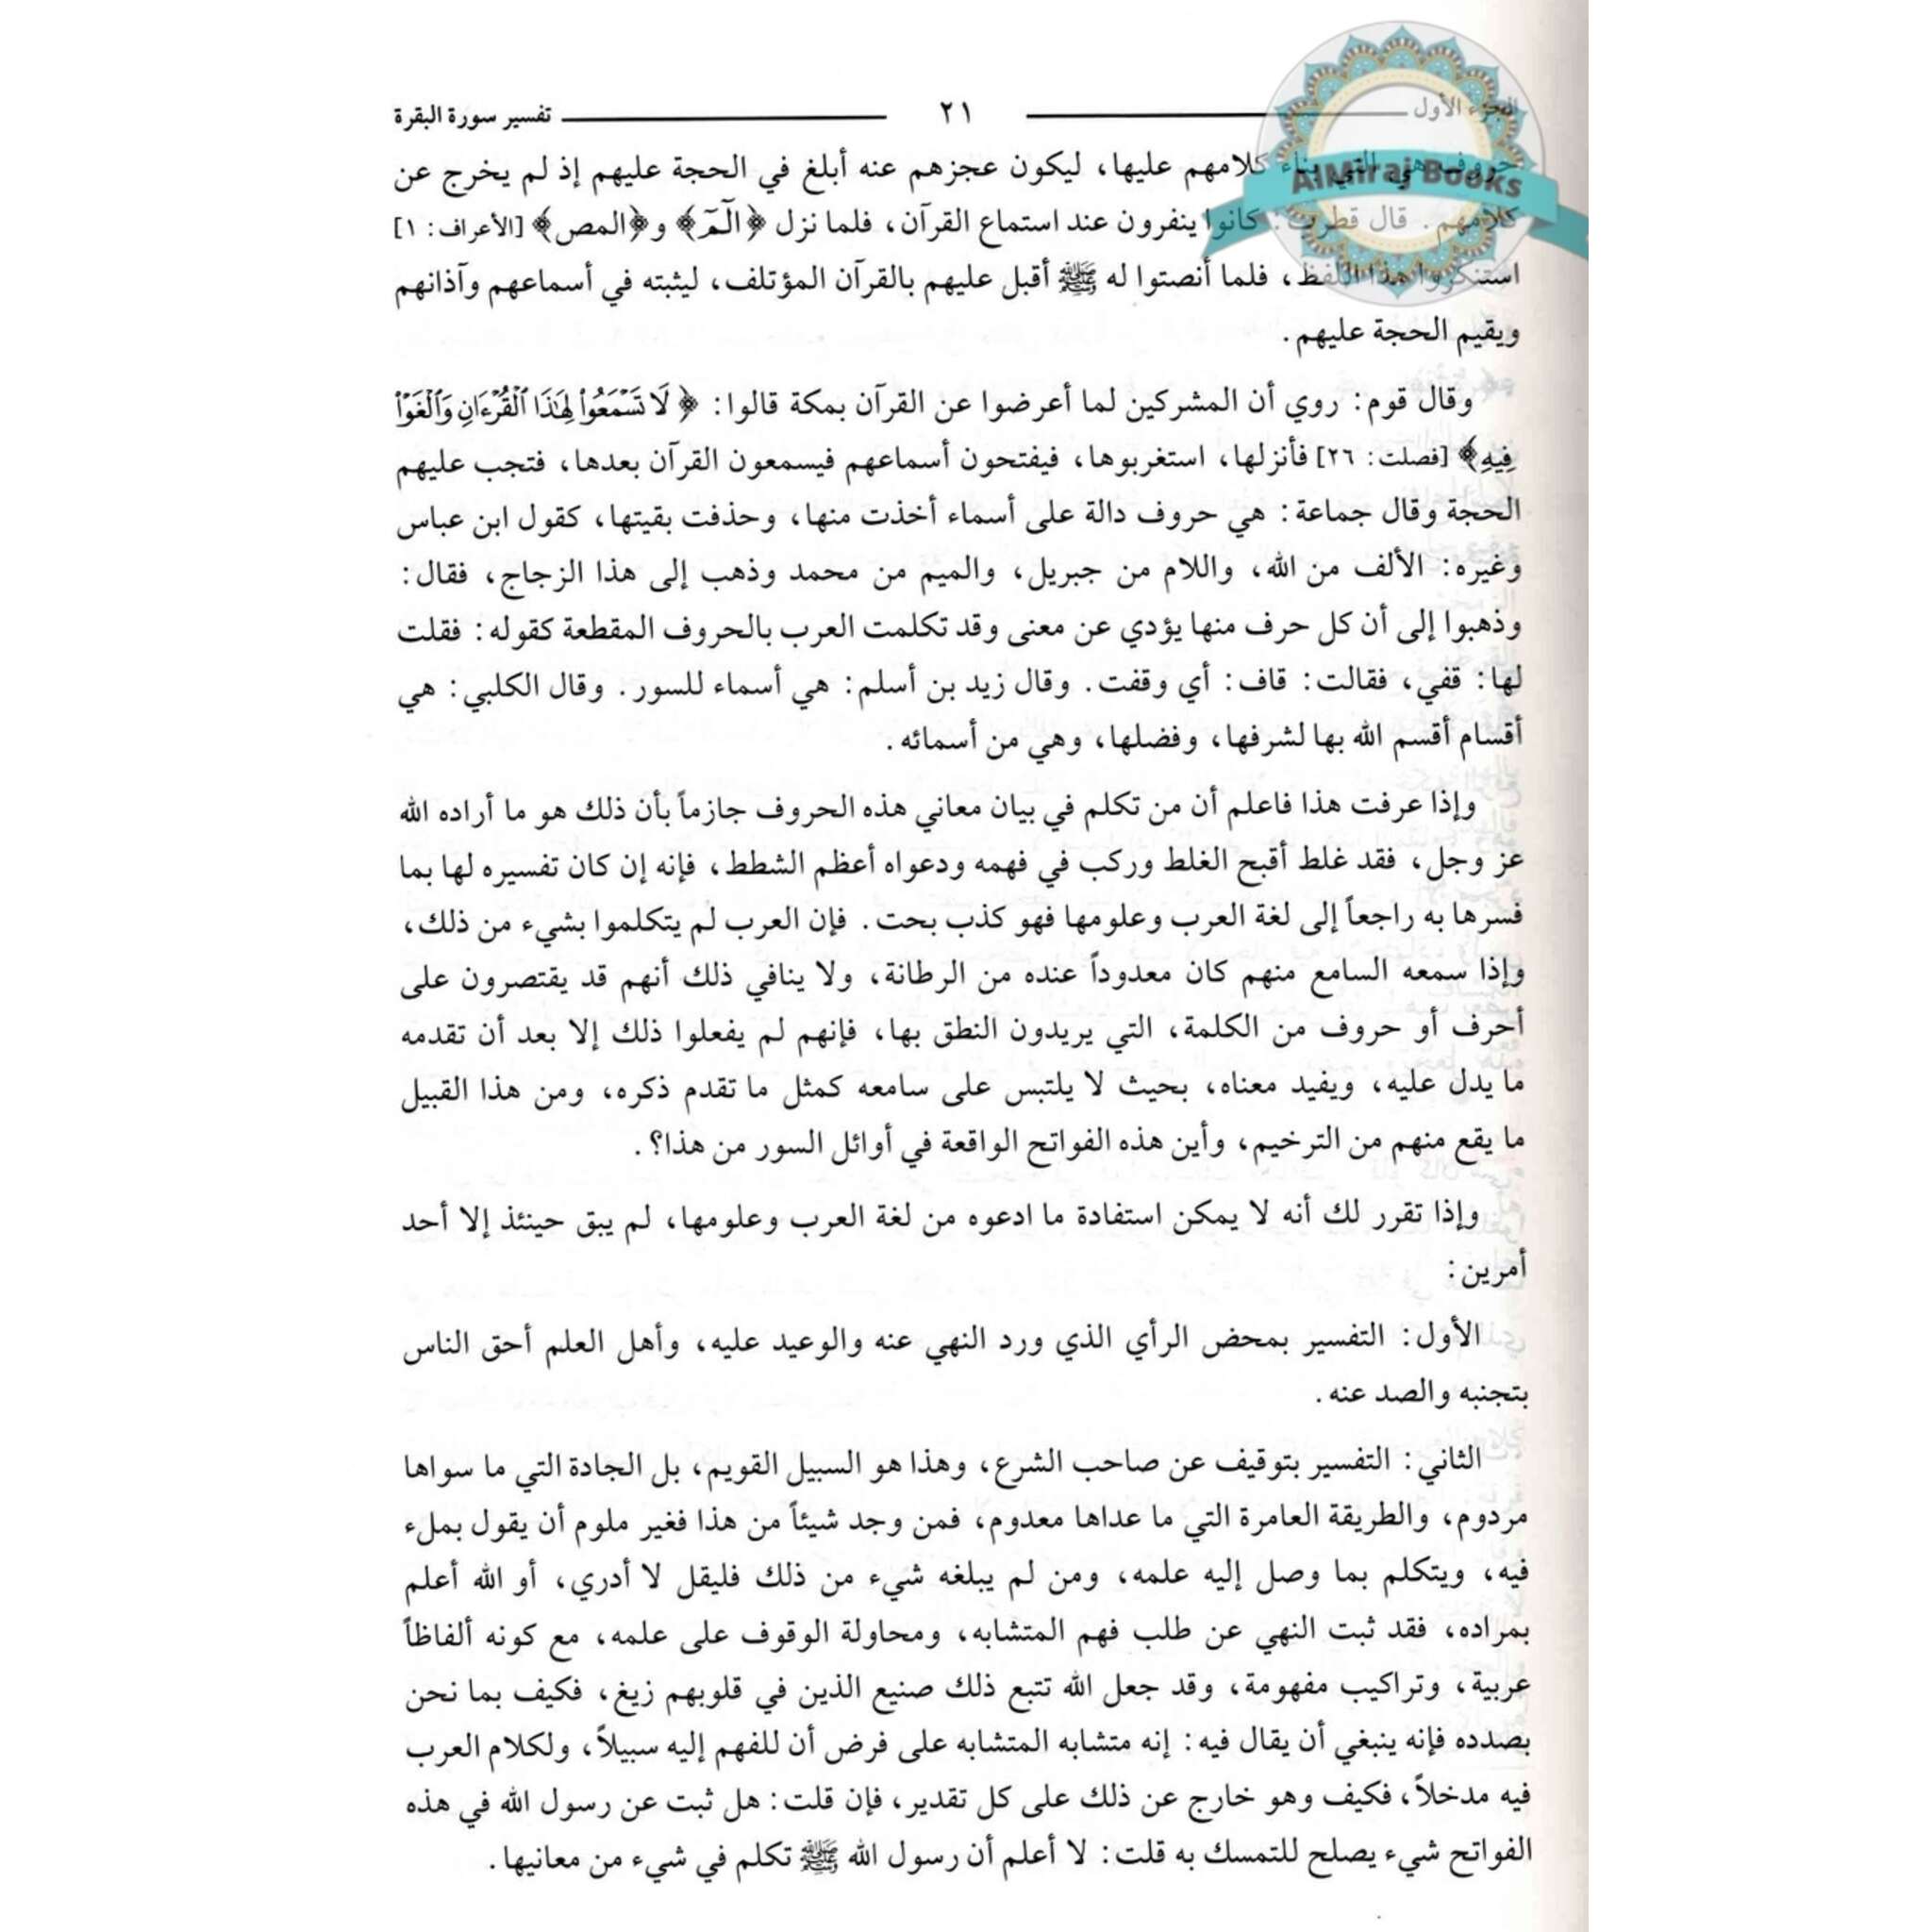 الجزء الأول ٢١ تفسير سورة البقرة
AlMiraj Books
حروف هي التي بناء كلامهم عليها، ليكون عجزهم عنه أبلغ في الحجة عليهم إذ لم يخرج عن
كلامهم. قال قطرب: كانوا ينفرون عند استماع القرآن، فلما نزل ﴿الٓمٓ﴾ و﴿المص﴾ [الأعراف: ١]
استنكروا هذا اللفظ، فلما أنصتوا له ﷺ أقبل عليهم بالقرآن المؤتلف، ليثبته في أسماعهم وآذانهم
ويقيم الحجة عليهم.
وقال قوم: روي أن المشركين لما أعرضوا عن القرآن بمكة قالوا: ﴿لَا تَسْمَعُوا۟ لِهَٰذَا ٱلْقُرْءَانِ وَٱلْغَوْا۟
فِيهِ﴾ [فصلت: ٢٦] فأنزلها، استغربوها، فيفتحون أسماعهم فيسمعون القرآن بعدها، فتجب عليهم
الحجة وقال جماعة: هي حروف دالة على أسماء أخذت منها، وحذفت بقيتها، كقول ابن عباس
وغيره: الألف من الله، واللام من جبريل، والميم من محمد وذهب إلى هذا الزجاج، فقال:
وذهبوا إلى أن كل حرف منها يؤدي عن معنى وقد تكلمت العرب بالحروف المقطعة كقوله: فقلت
لها: قفي، فقالت: قاف: أي وقفت. وقال زيد بن أسلم: هي أسماء للسور. وقال الكلبي: هي
أقسام أقسم الله بها لشرفها، وفضلها، وهي من أسمائه.
وإذا عرفت هذا فاعلم أن من تكلم في بيان معاني هذه الحروف جازماً بأن ذلك هو ما أراده الله
عز وجل، فقد غلط أقبح الغلط وركب في فهمه ودعواه أعظم الشطط، فإنه إن كان تفسيره لها بما
فسرها به راجعاً إلى لغة العرب وعلومها فهو كذب بحت. فإن العرب لم يتكلموا بشيء من ذلك،
وإذا سمعه السامع منهم كان معدوداً عنده من الرطانة، ولا ينافي ذلك أنهم قد يقتصرون على
أحرف أو حروف من الكلمة، التي يريدون النطق بها، فإنهم لم يفعلوا ذلك إلا بعد أن تقدمه
ما يدل عليه، ويفيد معناه، بحيث لا يلتبس على سامعه كمثل ما تقدم ذكره، ومن هذا القبيل
ما يقع منهم من الترخيم، وأين هذه الفواتح الواقعة في أوائل السور من هذا؟.
وإذا تقرر لك أنه لا يمكن استفادة ما ادعوه من لغة العرب وعلومها، لم يبق حينئذ إلا أحد
أمرين:
الأول: التفسير بمحض الرأي الذي ورد النهي عنه والوعيد عليه، وأهل العلم أحق الناس
بتجنبه والصد عنه.
الثاني: التفسير بتوقيف عن صاحب الشرع، وهذا هو السبيل القويم، بل الجادة التي ما سواها
مردوم، والطريقة العامرة التي ما عداها معدوم، فمن وجد شيئاً من هذا فغير ملوم أن يقول بملء
فيه، ويتكلم بما وصل إليه علمه، ومن لم يبلغه شيء من ذلك فليقل لا أدري، أو الله أعلم
بمراده، فقد ثبت النهي عن طلب فهم المتشابه، ومحاولة الوقوف على علمه، مع كونه ألفاظاً
عربية، وتراكيب مفهومة، وقد جعل الله تتبع ذلك صنيع الذين في قلوبهم زيغ، فكيف بما نحن
بصدده فإنه ينبغي أن يقال فيه: إنه متشابه المتشابه على فرض أن للفهم إليه سبيلاً، ولكلام العرب
فيه مدخلاً، فكيف وهو خارج عن ذلك على كل تقدير، فإن قلت: هل ثبت عن رسول الله في هذه
الفواتح شيء يصلح للتمسك به قلت: لا أعلم أن رسول الله ﷺ تكلم في شيء من معانيها.